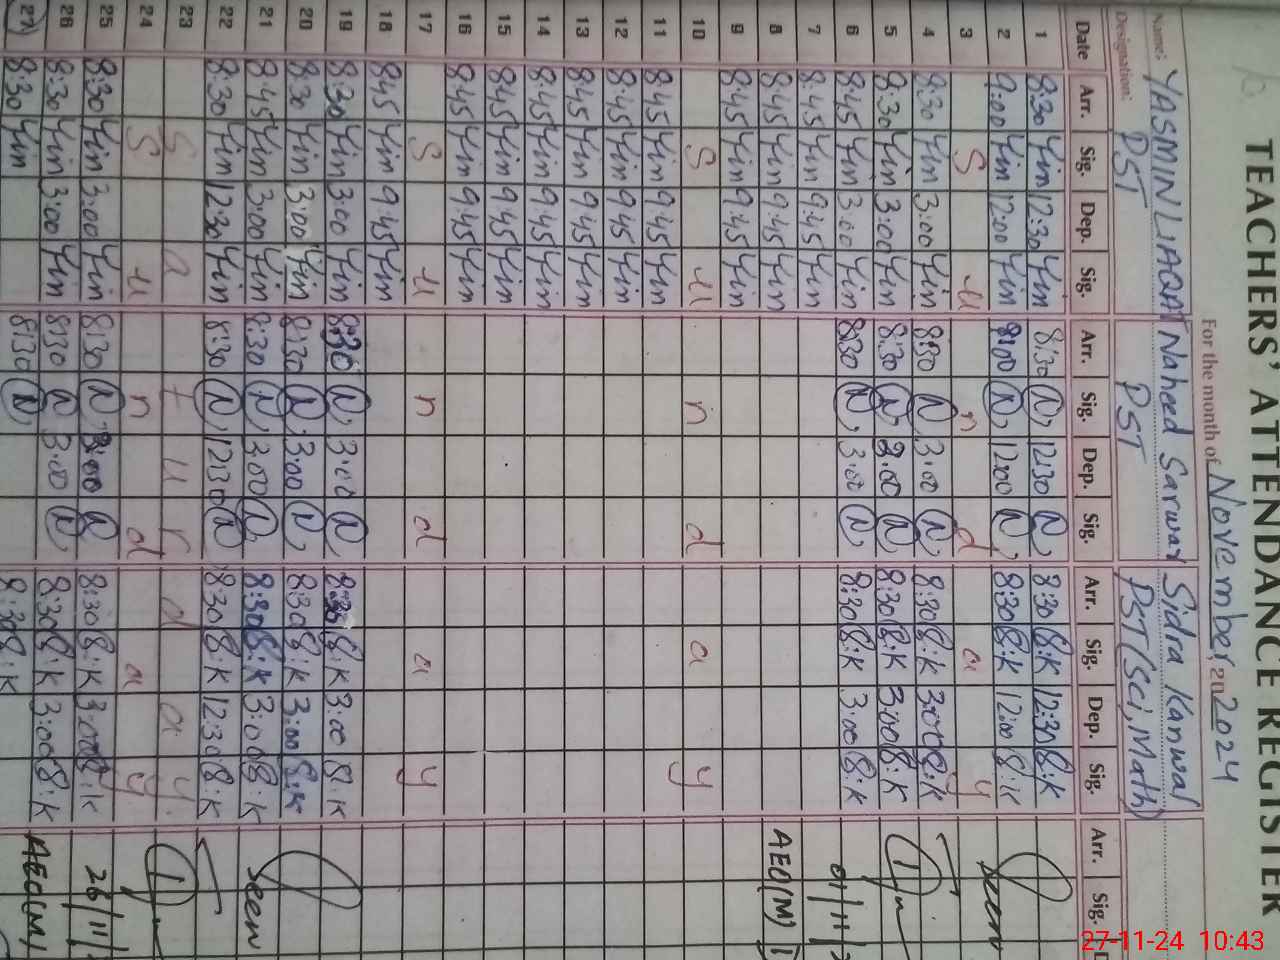 TEACHERS' ATTENDANCE REGISTER
For the month of November, 20 2024
Name: YASMIN LIAQAT Naheed Sarwar Sidra Kanwal
Designation: PST PST PST (Sci, Math)
Date Arr. Sig. Dep. Sig. Arr. Sig. Dep. Sig. Arr. Sig. Dep. Sig. Arr. Sig.
1 8:30 Yin 12:30 Yin 8:30 N 12:30 N 8:30 S:K 12:30 S:K
2 9:00 Yin 12:00 Yin 8:00 N 12:00 N 8:30 S:K 12:00 S:K Seen
3 S u n d a y
4 8:30 Yin 3:00 Yin 8:30 N 3:00 N 8:30 S:K 3:00 S:K
5 8:30 Yin 3:00 Yin 8:30 N 3:00 N 8:30 S:K 3:00 S:K
6 8:45 Yin 3:00 Yin 8:30 N 3:00 N 8:30 S:K 3:00 S:K 01/11/
7 8:45 Yin 9:45 Yin
8 8:45 Yin 9:45 Yin AEO(M)
9 8:45 Yin 9:45 Yin
10 S u n d a y
11 8:45 Yin 9:45 Yin
12 8:45 Yin 9:45 Yin
13 8:45 Yin 9:45 Yin
14 8:45 Yin 9:45 Yin
15 8:45 Yin 9:45 Yin
16 8:45 Yin 9:45 Yin
17 S u n d a y
18 8:45 Yin 9:45 Yin
19 8:30 Yin 3:00 Yin 8:30 N 3:00 N 8:30 S:K 3:00 S:K
20 8:30 Yin 3:00 Yin 8:30 N 3:00 N 8:30 S:K 3:00 S:K
21 8:45 Yin 3:00 Yin 8:30 N 3:00 N 8:30 S:K 3:00 S:K Seen
22 8:30 Yin 12:30 Yin 8:30 N 12:30 N 8:30 S:K 12:30 S:K
23 S a t u r d a y
24 S u n d a y
25 8:30 Yin 3:00 Yin 8:30 N 3:00 N 8:30 S:K 3:00 S:K 26/11/
26 8:30 Yin 3:00 Yin 8:30 N 3:00 N 8:30 S:K 3:00 S:K
27 8:30 Yin 8:30 N 8:30 S:K AEO(M)
27-11-24 10:43